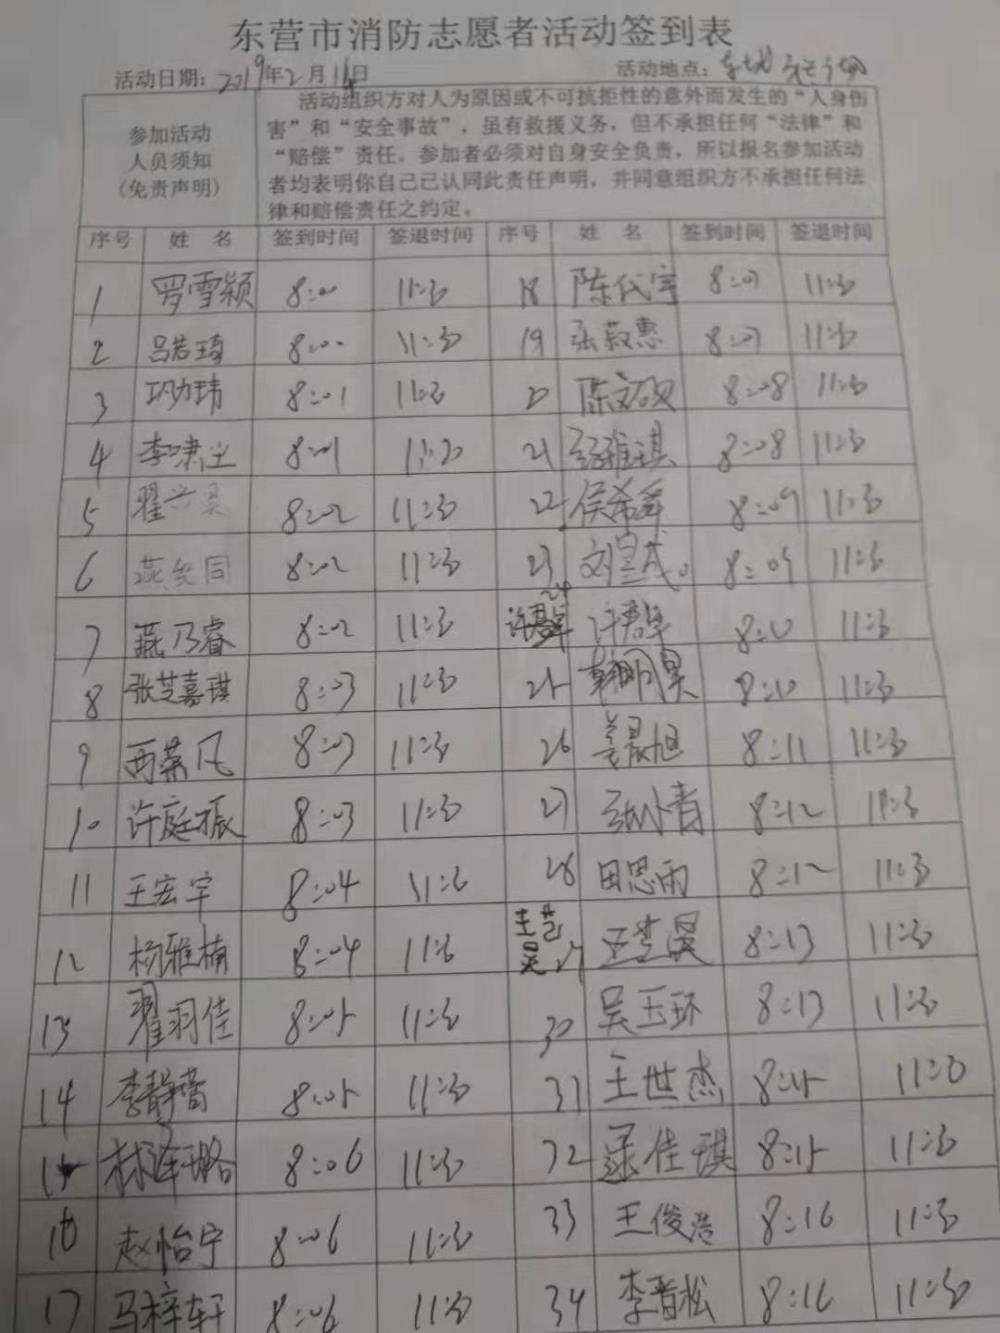 东营市消防志愿者活动签到表
活动日期：2019年2月16日 活动地点：东城
参加活动
人员须知
（免责声明）
活动组织方对人为原因或不可抗拒性的意外而发生的“人身伤
害”和“安全事故”，虽有救援义务，但不承担任何“法律”和
“赔偿”责任。参加者必须对自身安全负责，所以报名参加活动
者均表明你自己已认同此责任声明，并同意组织方不承担任何法
律和赔偿责任之约定。
序号 姓 名 签到时间 签退时间 序号 姓 名 签到时间 签退时间
1 罗雪颖 8:00 11:30 18 陈代宇 8:07 11:30
2 吕若琦 8:00 11:30 19 张毅惠 8:07 11:30
3 巩力玮 8:01 11:30 20 陈文硕 8:08 11:30
4 李啸尘 8:01 11:30 21 8:08 11:30
5 翟兴昊 8:02 11:30 22 侯希军 8:09 11:30
6 燕俊同 8:02 11:30 23 刘宣成。 8:09 11:30
7 燕乃睿 8:02 11:30 24 许君卓 许君卓 8:10 11:30
8 张芝嘉琪 8:03 11:30 25 韩明昊 8:10 11:30
9 西荣凡 8:03 11:30 26 姜晨旭 8:11 11:30
10 许庭振 8:03 11:30 27 张小青 8:12 11:30
11 王宏宇 8:04 11:30 28 田思雨 8:12 11:30
12 杨雅楠 8:04 11:30 王艺昊 29 王艺昊 8:13 11:30
13 翟羽佳 8:05 11:30 30 吴玉环 8:13 11:30
14 李静蕾 8:05 11:30 31 王世杰 8:15 11:30
15 林泽璐 8:06 11:30 32 梁佳琪 8:15 11:30
16 赵怡宁 8:06 11:30 33 王俊浩 8:16 11:30
17 马梓轩 8:06 11:30 34 李晋松 8:16 11:30